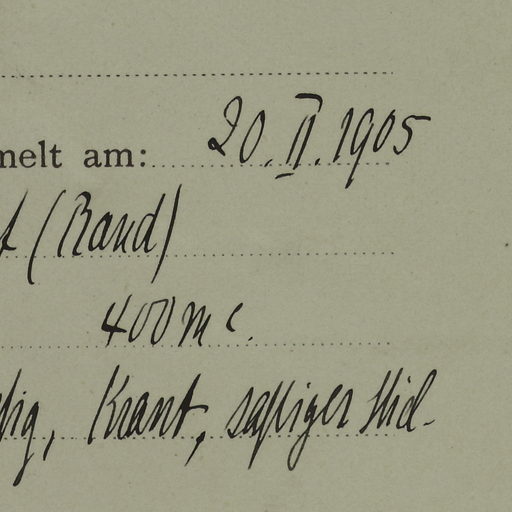 melt am: 20. II. 1905
(Rand)
400 m c.
ig, Kraut, saftiger Stiel-